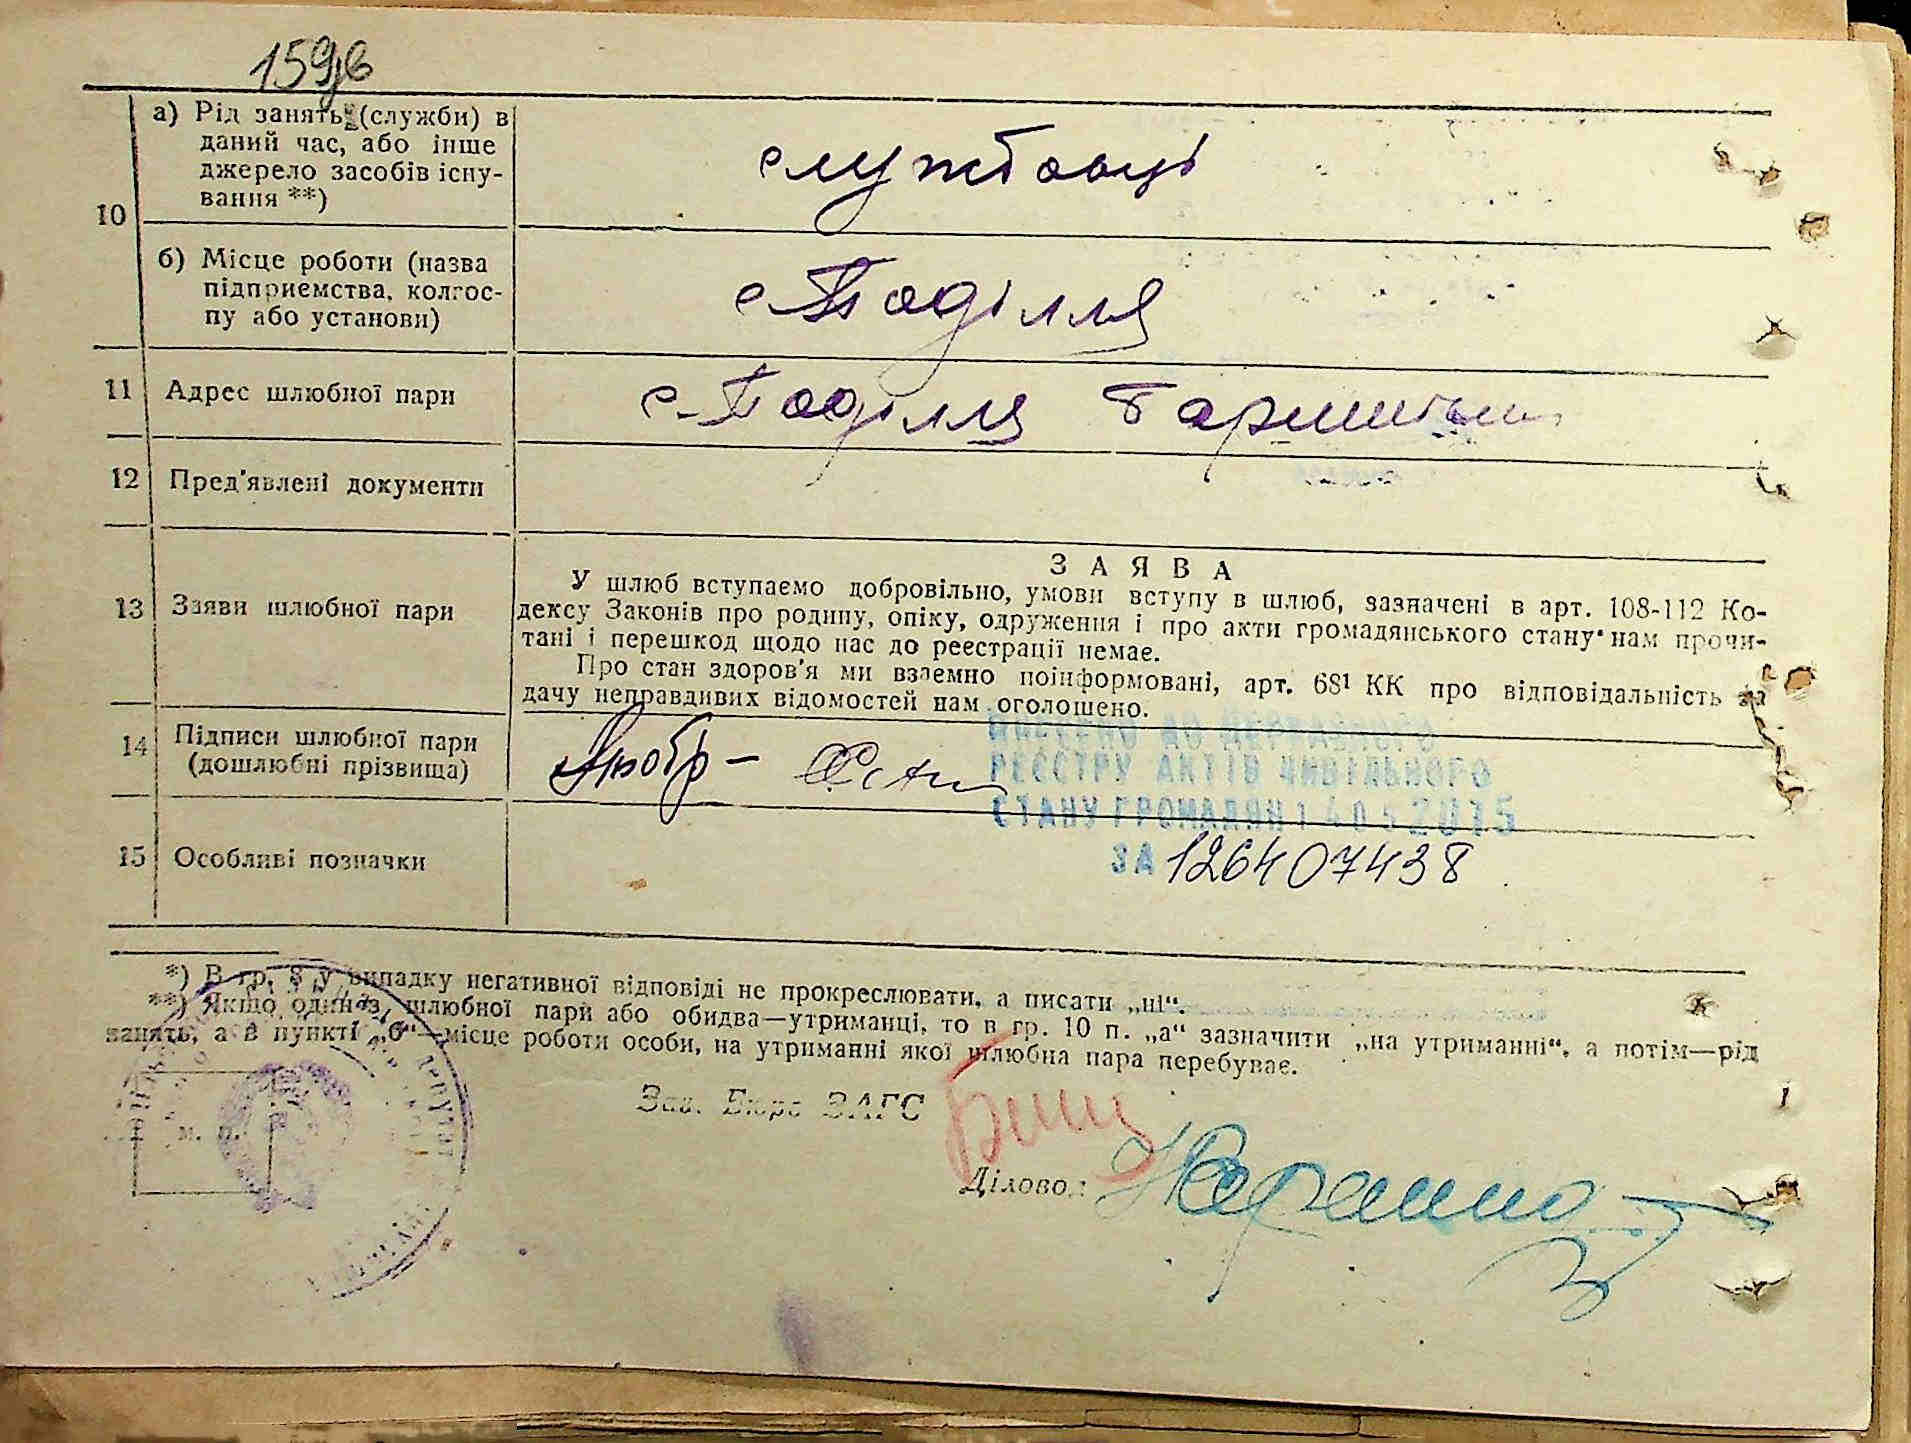 159зв
10
а) Рід занять (служби) в
даний час, або інше
джерело засобів існу-
вання **)
службовці
б) Місце роботи (назва
підприємства, колгос-
пу або установи)
с. Поділля
11
Адрес шлюбної пари
с. Поділля
12
Пред'явлені документи
13
Заяви шлюбної пари
ЗАЯВА
У шлюб вступаємо добровільно, умови вступу в шлюб, зазначені в арт. 108-112 Ко-
дексу Законів про родину, опіку, одруження і про акти громадянського стану нам прочи-
тані і перешкод щодо нас до реєстрації немає.
Про стан здоров'я ми взаємно поінформовані, арт. 68¹ КК про відповідальність за
дачу неправдивих відомостей нам оголошено.
14
Підписи шлюбної пари
(дошлюбні прізвища)
ВНЕСЕНО ДО ДЕРЖАВНОГО
РЕЄСТРУ АКТІВ ЦИВІЛЬНОГО
СТАНУ ГРОМАДЯН 14 05 2015
ЗА 126407438
15
Особливі позначки
*) В гр. 8 у випадку негативної відповіді не прокреслювати, а писати „ні“.
**) Якщо один із шлюбної пари або обидва—утриманці, то в гр. 10 п. „а“ зазначити „на утриманні“, а потім—рід
занять, а в пункті „б“—місце роботи особи, на утриманні якої шлюбна пара перебуває.
Зав. Бюро ЗАГС
м. п.
Діловод